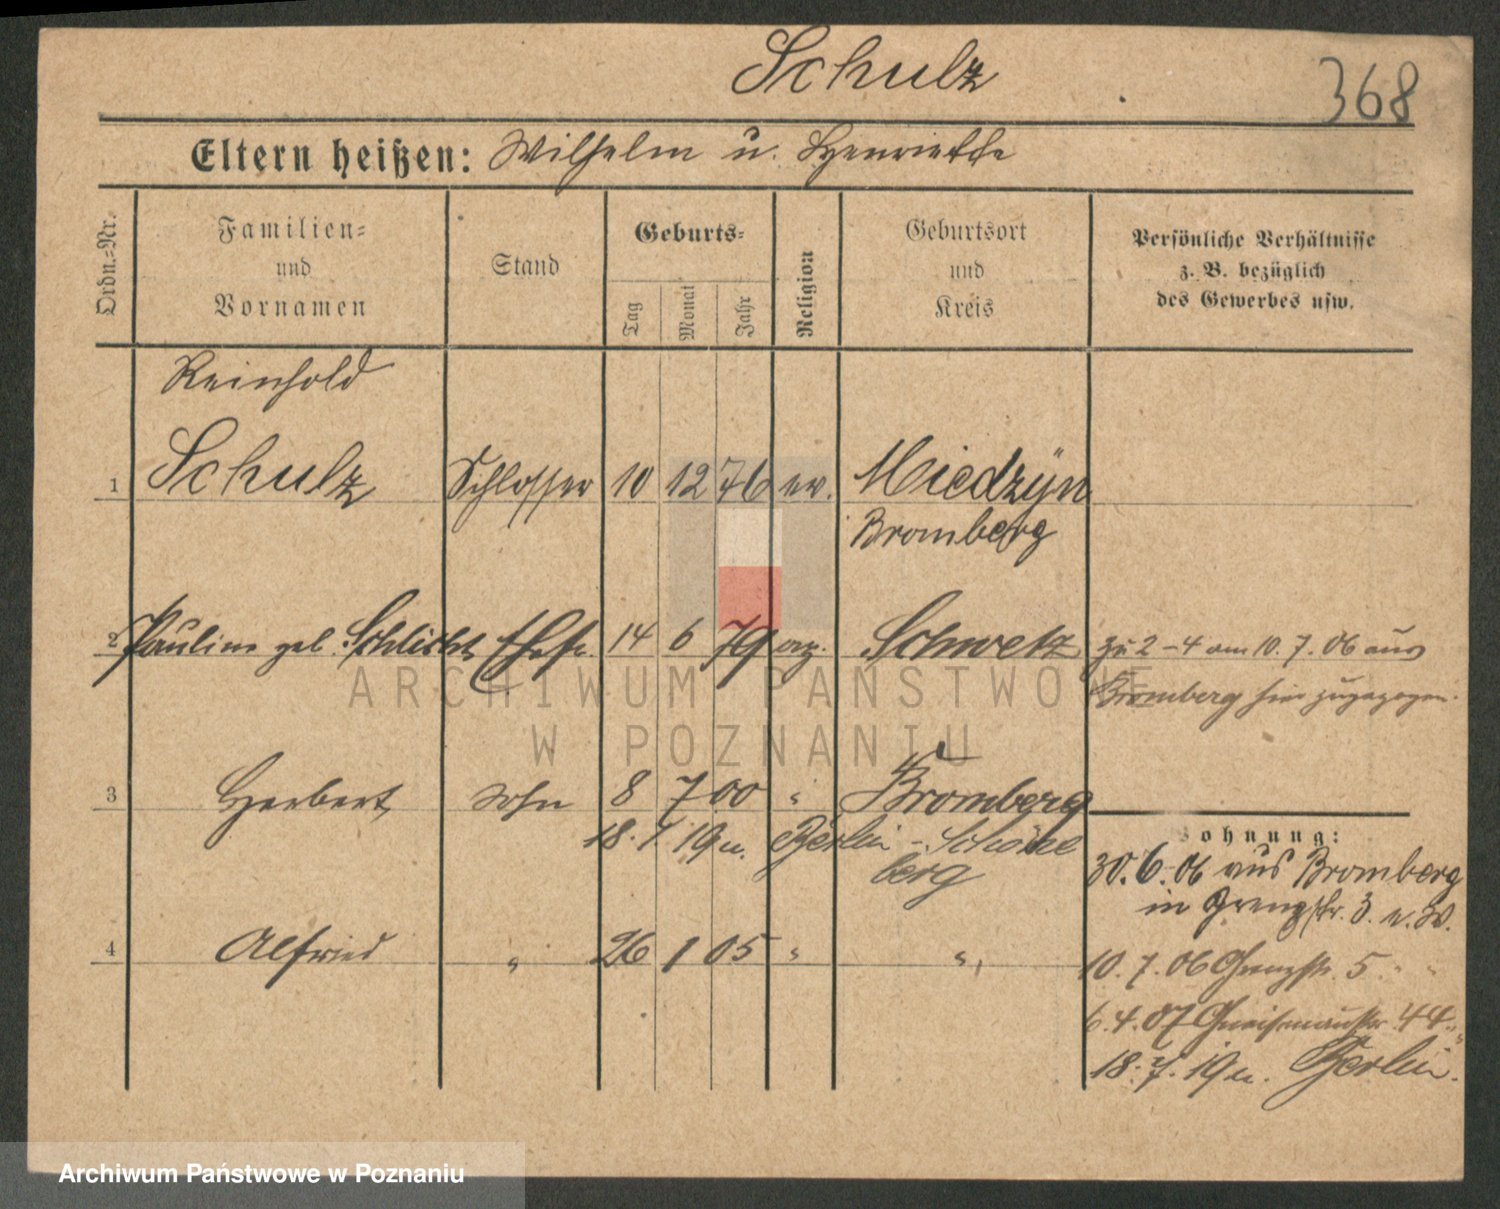 Schulz
368
Eltern heißen: Wilhelm u. Henriette
Ordn.-Nr.
Familien-
und
Vornamen
Stand
Geburts-
Tag
Monat
Jahr
Religion
Geburtsort
und
Kreis
Persönliche Verhältnisse
z. B. bezüglich
des Gewerbes usw.
Reinhold
1 Schulz Schlosser 10 12 76 ev. Miedzyn
Bromberg
2 Pauline geb. Schlicht Ehefr. 14 6 79 Schwetz zu 2-4 am 10.7.06 aus
Bromberg hier zugezogen.
3 Herbert Sohn 8 7 00 " Bromberg
18. 7. 19 n. Berlin-Schöne
berg
Wohnung:
30.6.06 aus Bromberg
in Grenzstr. 3. n. W.
4 Alfried " 26 1 05 " "
10.7.06 Grenzstr. 5 " "
6.4.07 Gneisenaustr. 44 " "
18.7.19 n. Berlin.
ARCHIWUM PAŃSTWOWE
W POZNANIU
Archiwum Państwowe w Poznaniu